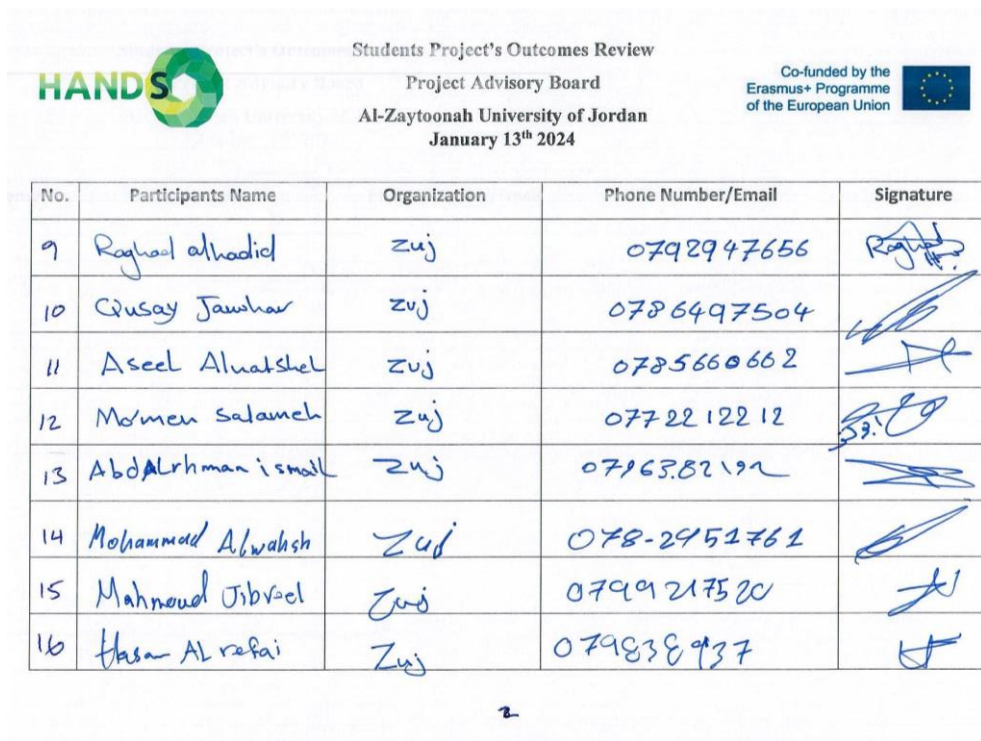 HANDS
Students Project's Outcomes Review
Project Advisory Board
Al-Zaytoonah University of Jordan
January 13th 2024
Co-funded by the
Erasmus+ Programme
of the European Union
No. Participants Name Organization Phone Number/Email Signature
9 Raghad alhadid zuj 0792947656 Raghad
10 Qusay Jawhar zuj 0786497504
11 Aseel Alnatsheh zuj 0785660662
12 Mo'men Salameh zuj 0772212212
13 AbdALrhman ismail zuj
14 Mohammad Alwahsh Zuj 078-2951761
15 Mahmoud Jibreel Zuj 0799217520
16 Hasan AL refai Zuj
2